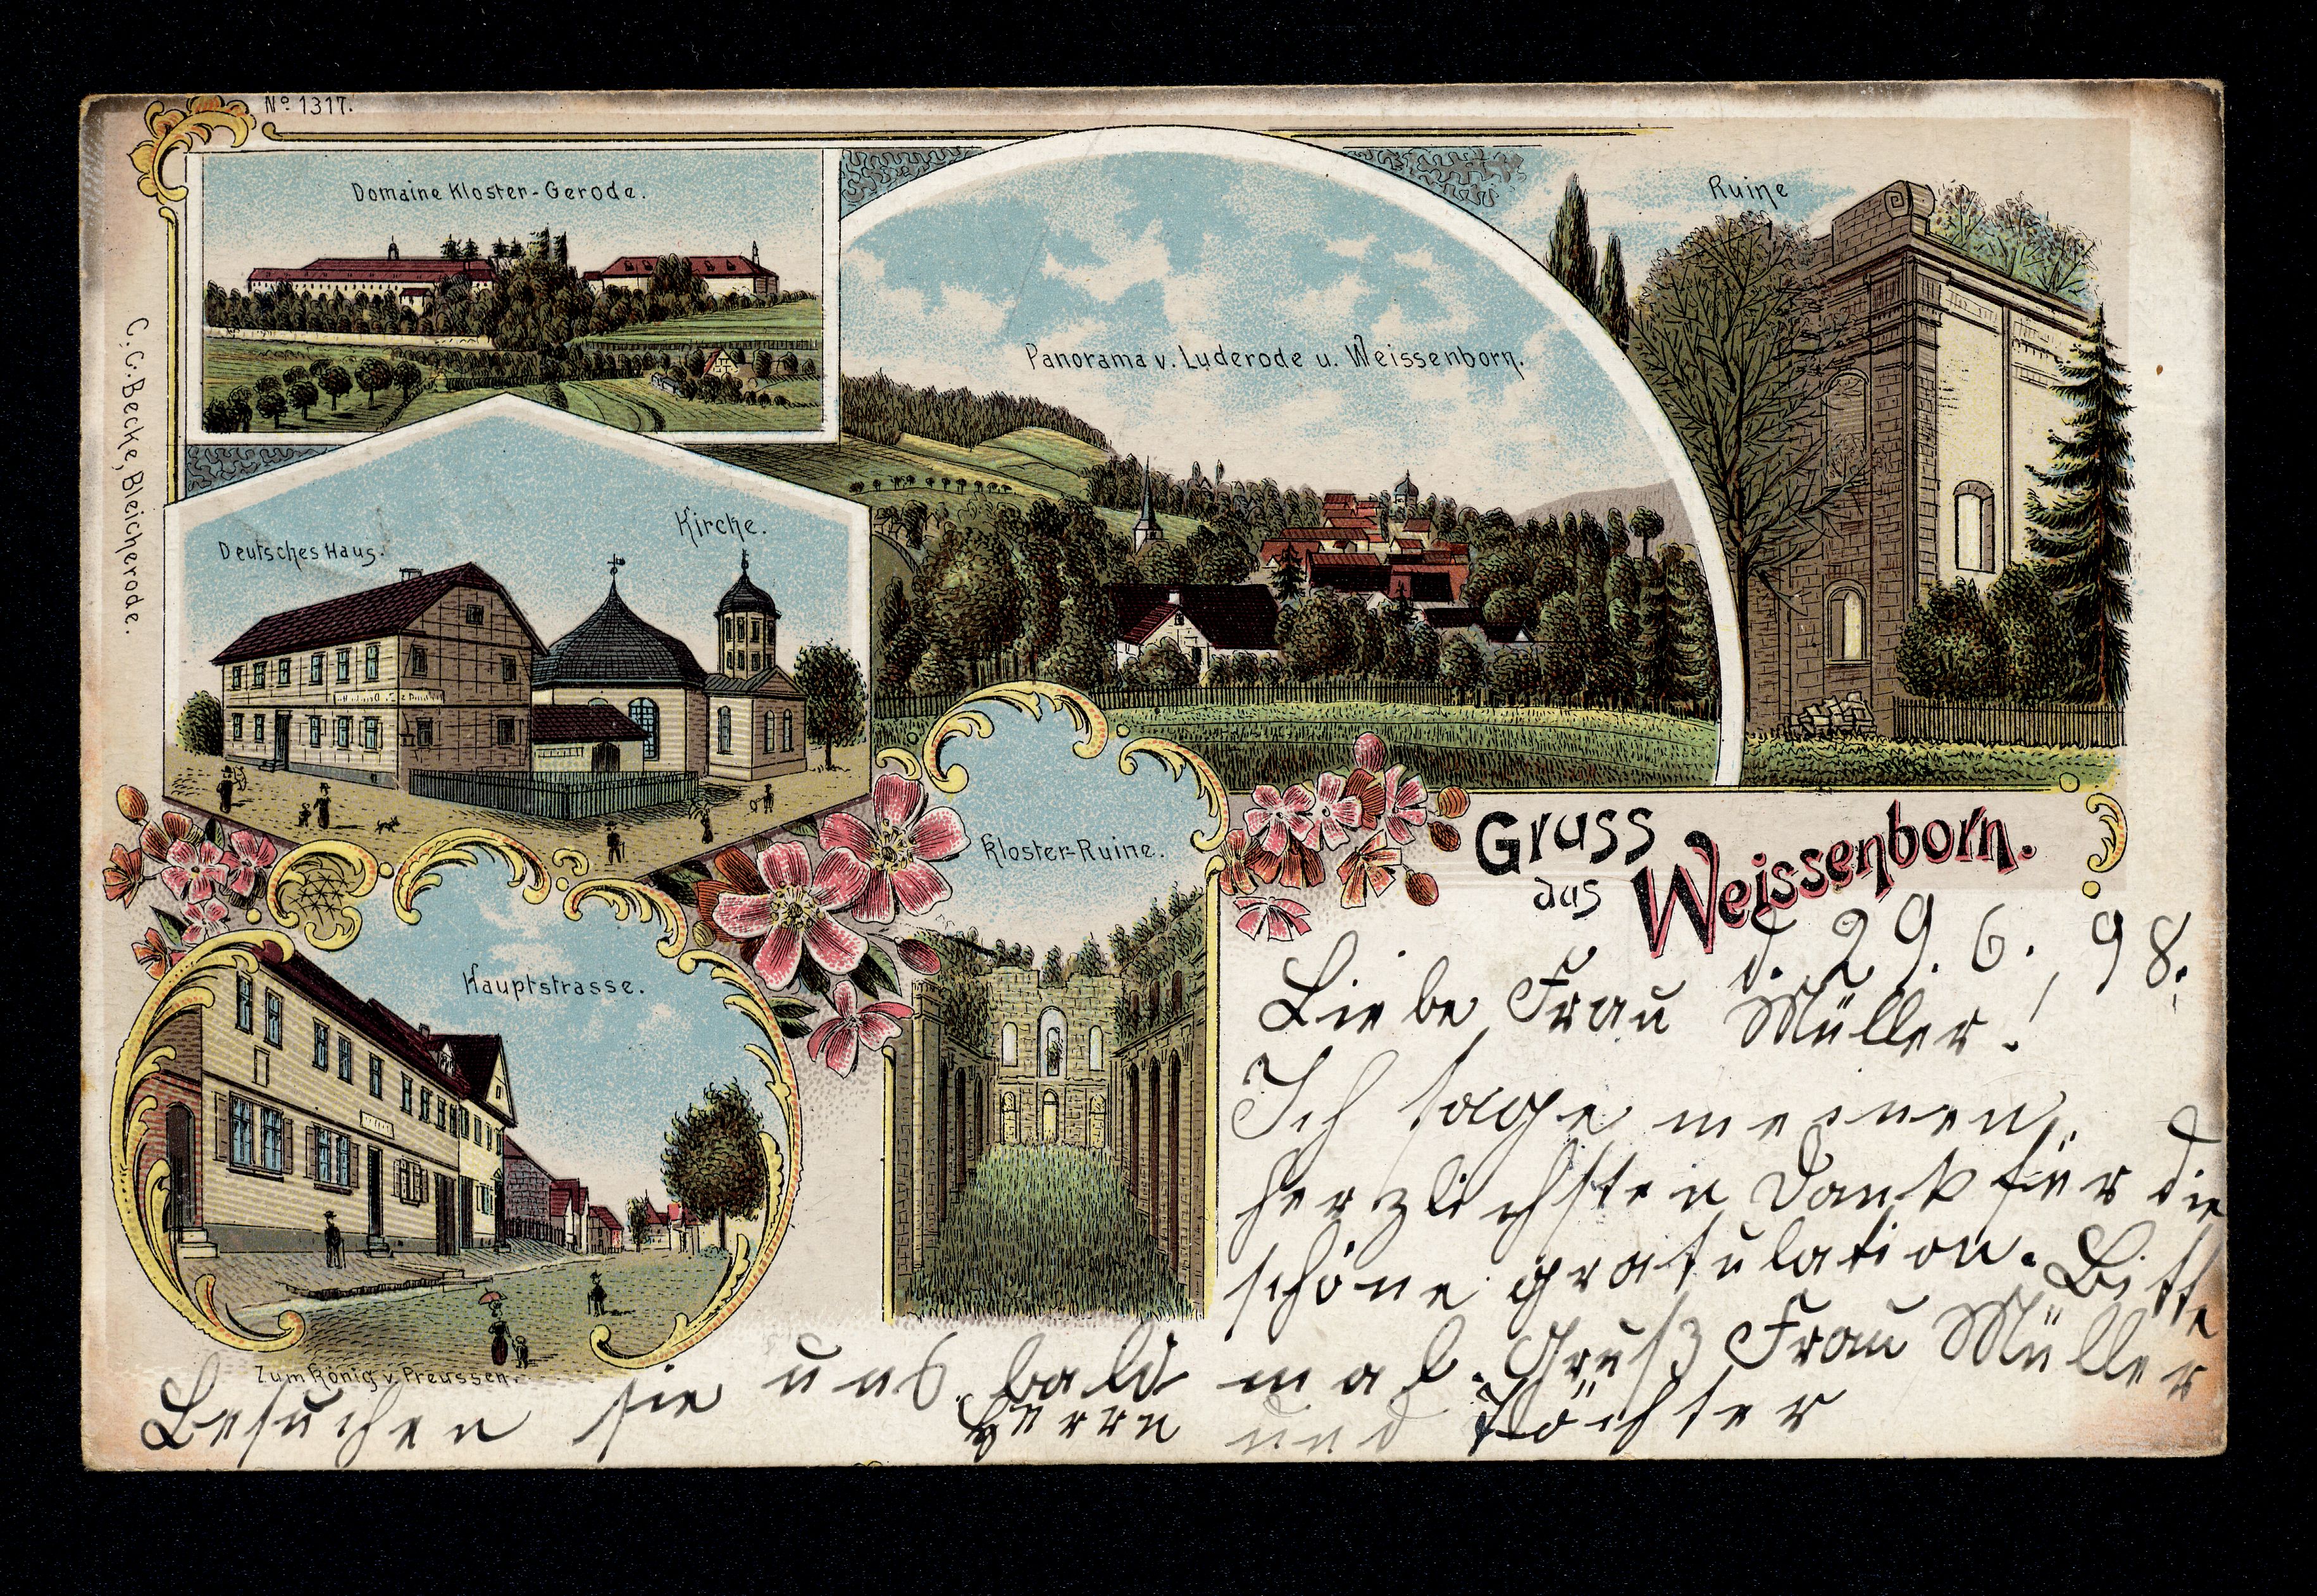 No 1317.
Domaine Kloster-Gerode.
Ruine
Panorama v. Luderode u. Weissenborn.
C. C. Becke, Bleicherode.
Deutsches Haus.
Kirche.
Kloster-Ruine.
Hauptstrasse.
Zum König v. Preussen.
Gruss
aus Weissenborn.
d. 29. 6. 98.
Liebe Frau Müller!
Ich sage meinen
herzlichsten Dank für die
schöne gratulation. Bitte
Besuchen sie uns bald mal. Gruß Frau Müller
Herrn und Töchter